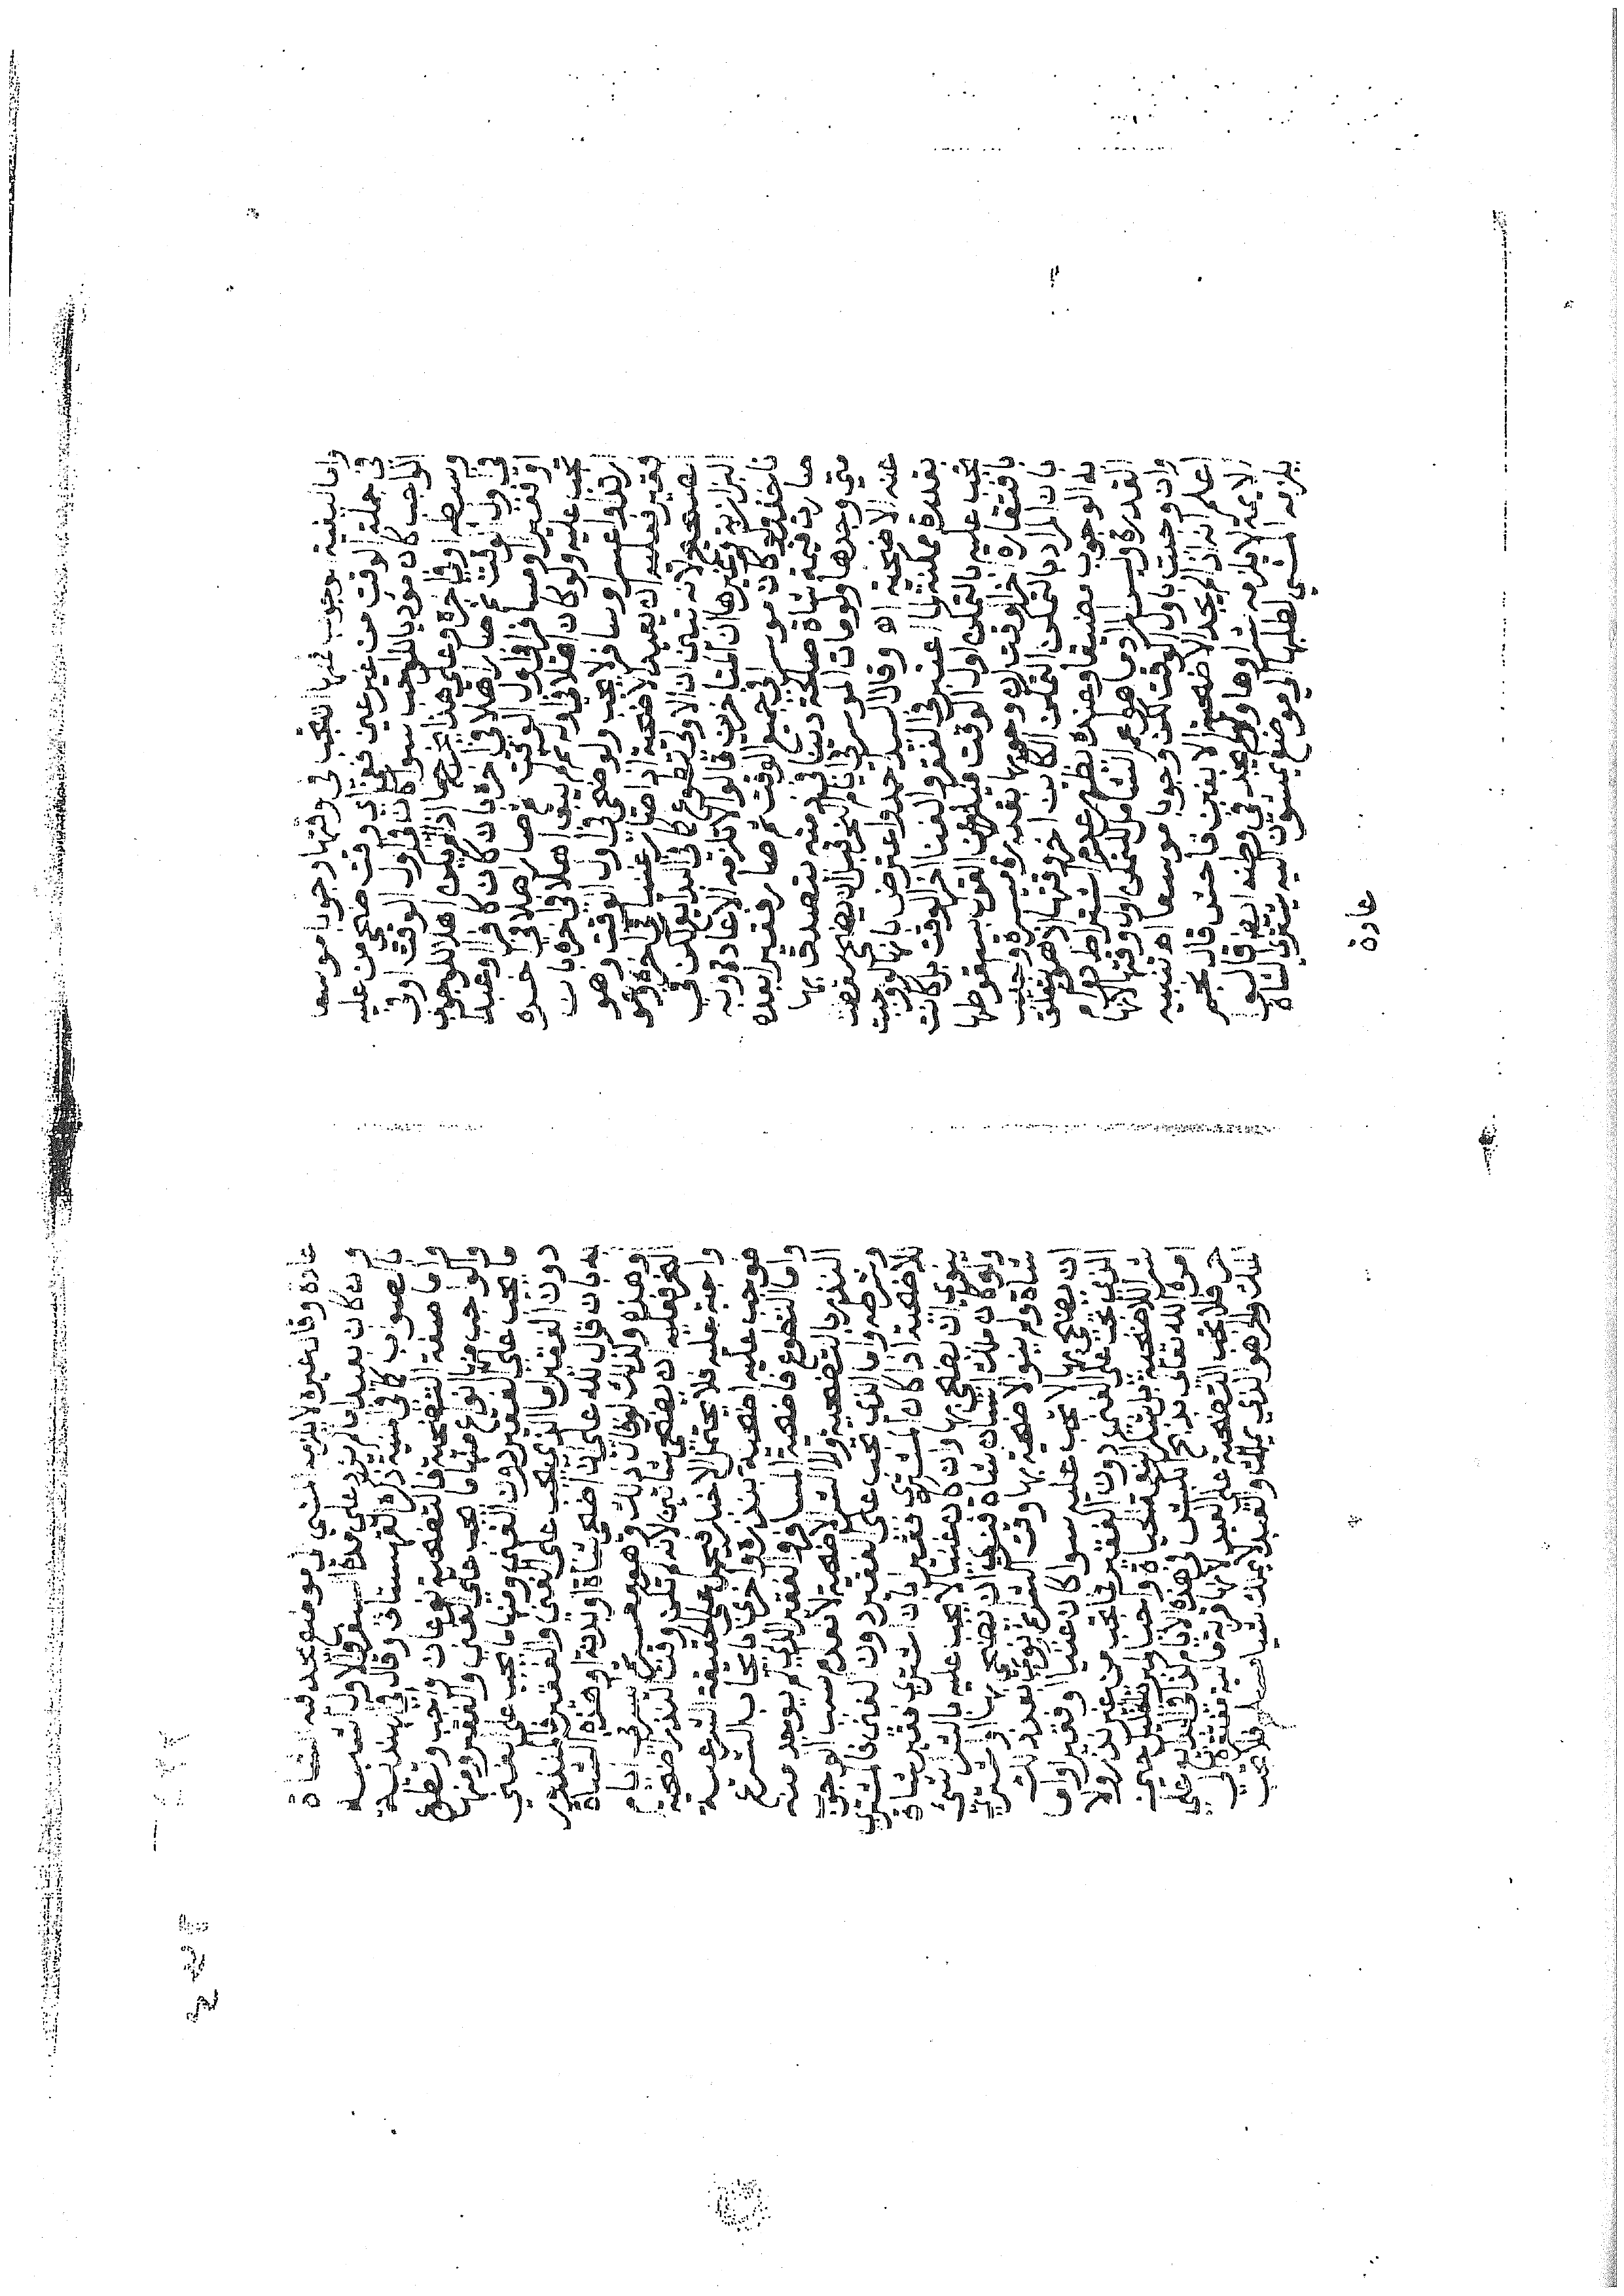 واما كيفية وجوب فمنها انها تجب في وقتها وجوبا موسعا
في جملة الوقت من غير عين ففي اي وقت ضحى من عليه
الواجب كان موديا للواجب سوا كان في اول الوقت او في
وسطه او في اخره وعلى هذا يخرج ما اذا لم يكن اهلا للوجوب
في اول الوقت ثم صار اهلا في اخره بان كان كافرا او عبدا
او فقيرا او مسافرا في اول الوقت ثم صار اهلا في اخره
تجب عليه ولو كان اهلا في اوله ثم لم يبق اهلا في اخره بان
ارتد او اعسر او سافر لا تجب ولو ضحى في اول الوقت وهو
فقير فعليه ان يعيد الاضحية اذا صار غنيا في اخره وهو
الصحيح لانه تبين ان الاولى تطوع كما في البدايع لكن في
البزازية وغيرها ان المتاخرين قالوا لا تلزمه الاعادة وبه
ناخذ ولو كان موسرا في جميع الوقت ثم صار فقيرا بعده
صارت قيمة شاة صالحة دينا في ذمته يتصدق بها
متى وجدها ولو مات الموسر في ايام النحر قبل ان يضحي سقطت
عنه الاضحية اه وقال السيد حمد واعترض بانها لو وجبت
بقدرة ممكنة لما اعتبر في الفقر والغنا اخر الوقت بل كانت
تجب عليه بالتمكن اول الوقت القول بسقوطها
بافتقاره اخر الوقت ان وجوبها بقدرة ميسرة واجيب
بان المراد بالتمكن التمكن الكاين اخر وقتها يتعلق
به الوجوب مضيقا وعنده يظهر عدم اشتراط دوام
القدرة وليس المراد ما هو اعم الشامل للتمكن اول وقتها لانها
وان وجبت باول الوقت لكن وجوبا موسعا اه تنبيه
اعلم انه اذا لم يجد الاضحية الا بغبن فاحش قال بعض
الايمة لا يلزمه شراوها ولو لم يجد في وطنه ايضا قالوا
يلزمه المشي لطلبها الى موضع يسوقون اليه يشتري الشاة
عادة
عادة وقال غيره لا يلزمه المشي الى موضع يجد فيه الشاة
ولو كان بعيدا ما لم يزد على مدة السفر والاول اشبه
بالصواب كما في المنية ذكره القهستاني وقال في الهندية
واما صفة التضحية فالتضحية نوعان واجب وتطوع
والواجب منها انواع منها ما يجب على الغني والفقير ومنها
ما يجب على الفقير دون الغني ومنها ما يجب على الغني
دون الفقير اما الذي يجب على الغني والفقير فالمنذور
به بان قال لله علي ان اضحي شاة او بدنة او هذه الشاة
وهذه وكذلك لو قال ذلك وهو معسر ثم ايسر في ايام
النحر فعليه ان يضحي شاتين لانه لم تكن وقت النذر اضحية
واجبة عليه فلا يحتمل الاخبار فيحمل على الحقيقة الشرعية
فوجب عليه اضحية بنذره واخرى بايجاب الشرع
واما التطوع فاضحية المسافر والفقير الذي لم يوجد منه
النذر بالتضحية ولا الشرا للاضحية لانعدام سبب الوجوب
وشرطه واما الذي يجب على الفقير دون الغني فالمشترى
للاضحية اذا كان المشتري فقيرا بان اشترى فقير شاة
ينوي ان يضحي بها وان كان غنيا لا يجب عليه بالشرا شي
ولو كان ملك انسان شاة فنوى ان يضحي بها او اشترى
شاة ولم ينو الاضحية بها وقت الشرا ثم نوى بعد ذلك
ان يضحي بها لا تجب عليه سوا كان غنيا او فقيرا واما
الذي يجب على الغني دون الفقير فما يجب من غير نذر ولا
شرا للاضحية بل شكرا لنعمة الحياة واحيا
امره الله تعالى بذبح الكبش في هذه الايام كذا في البدايع
حر فلا تجب التضحية على العبد لانها قربة مالية
الملك والحر هو الذي يملك والعبد لا يملك شيا مسلم فلا تجب